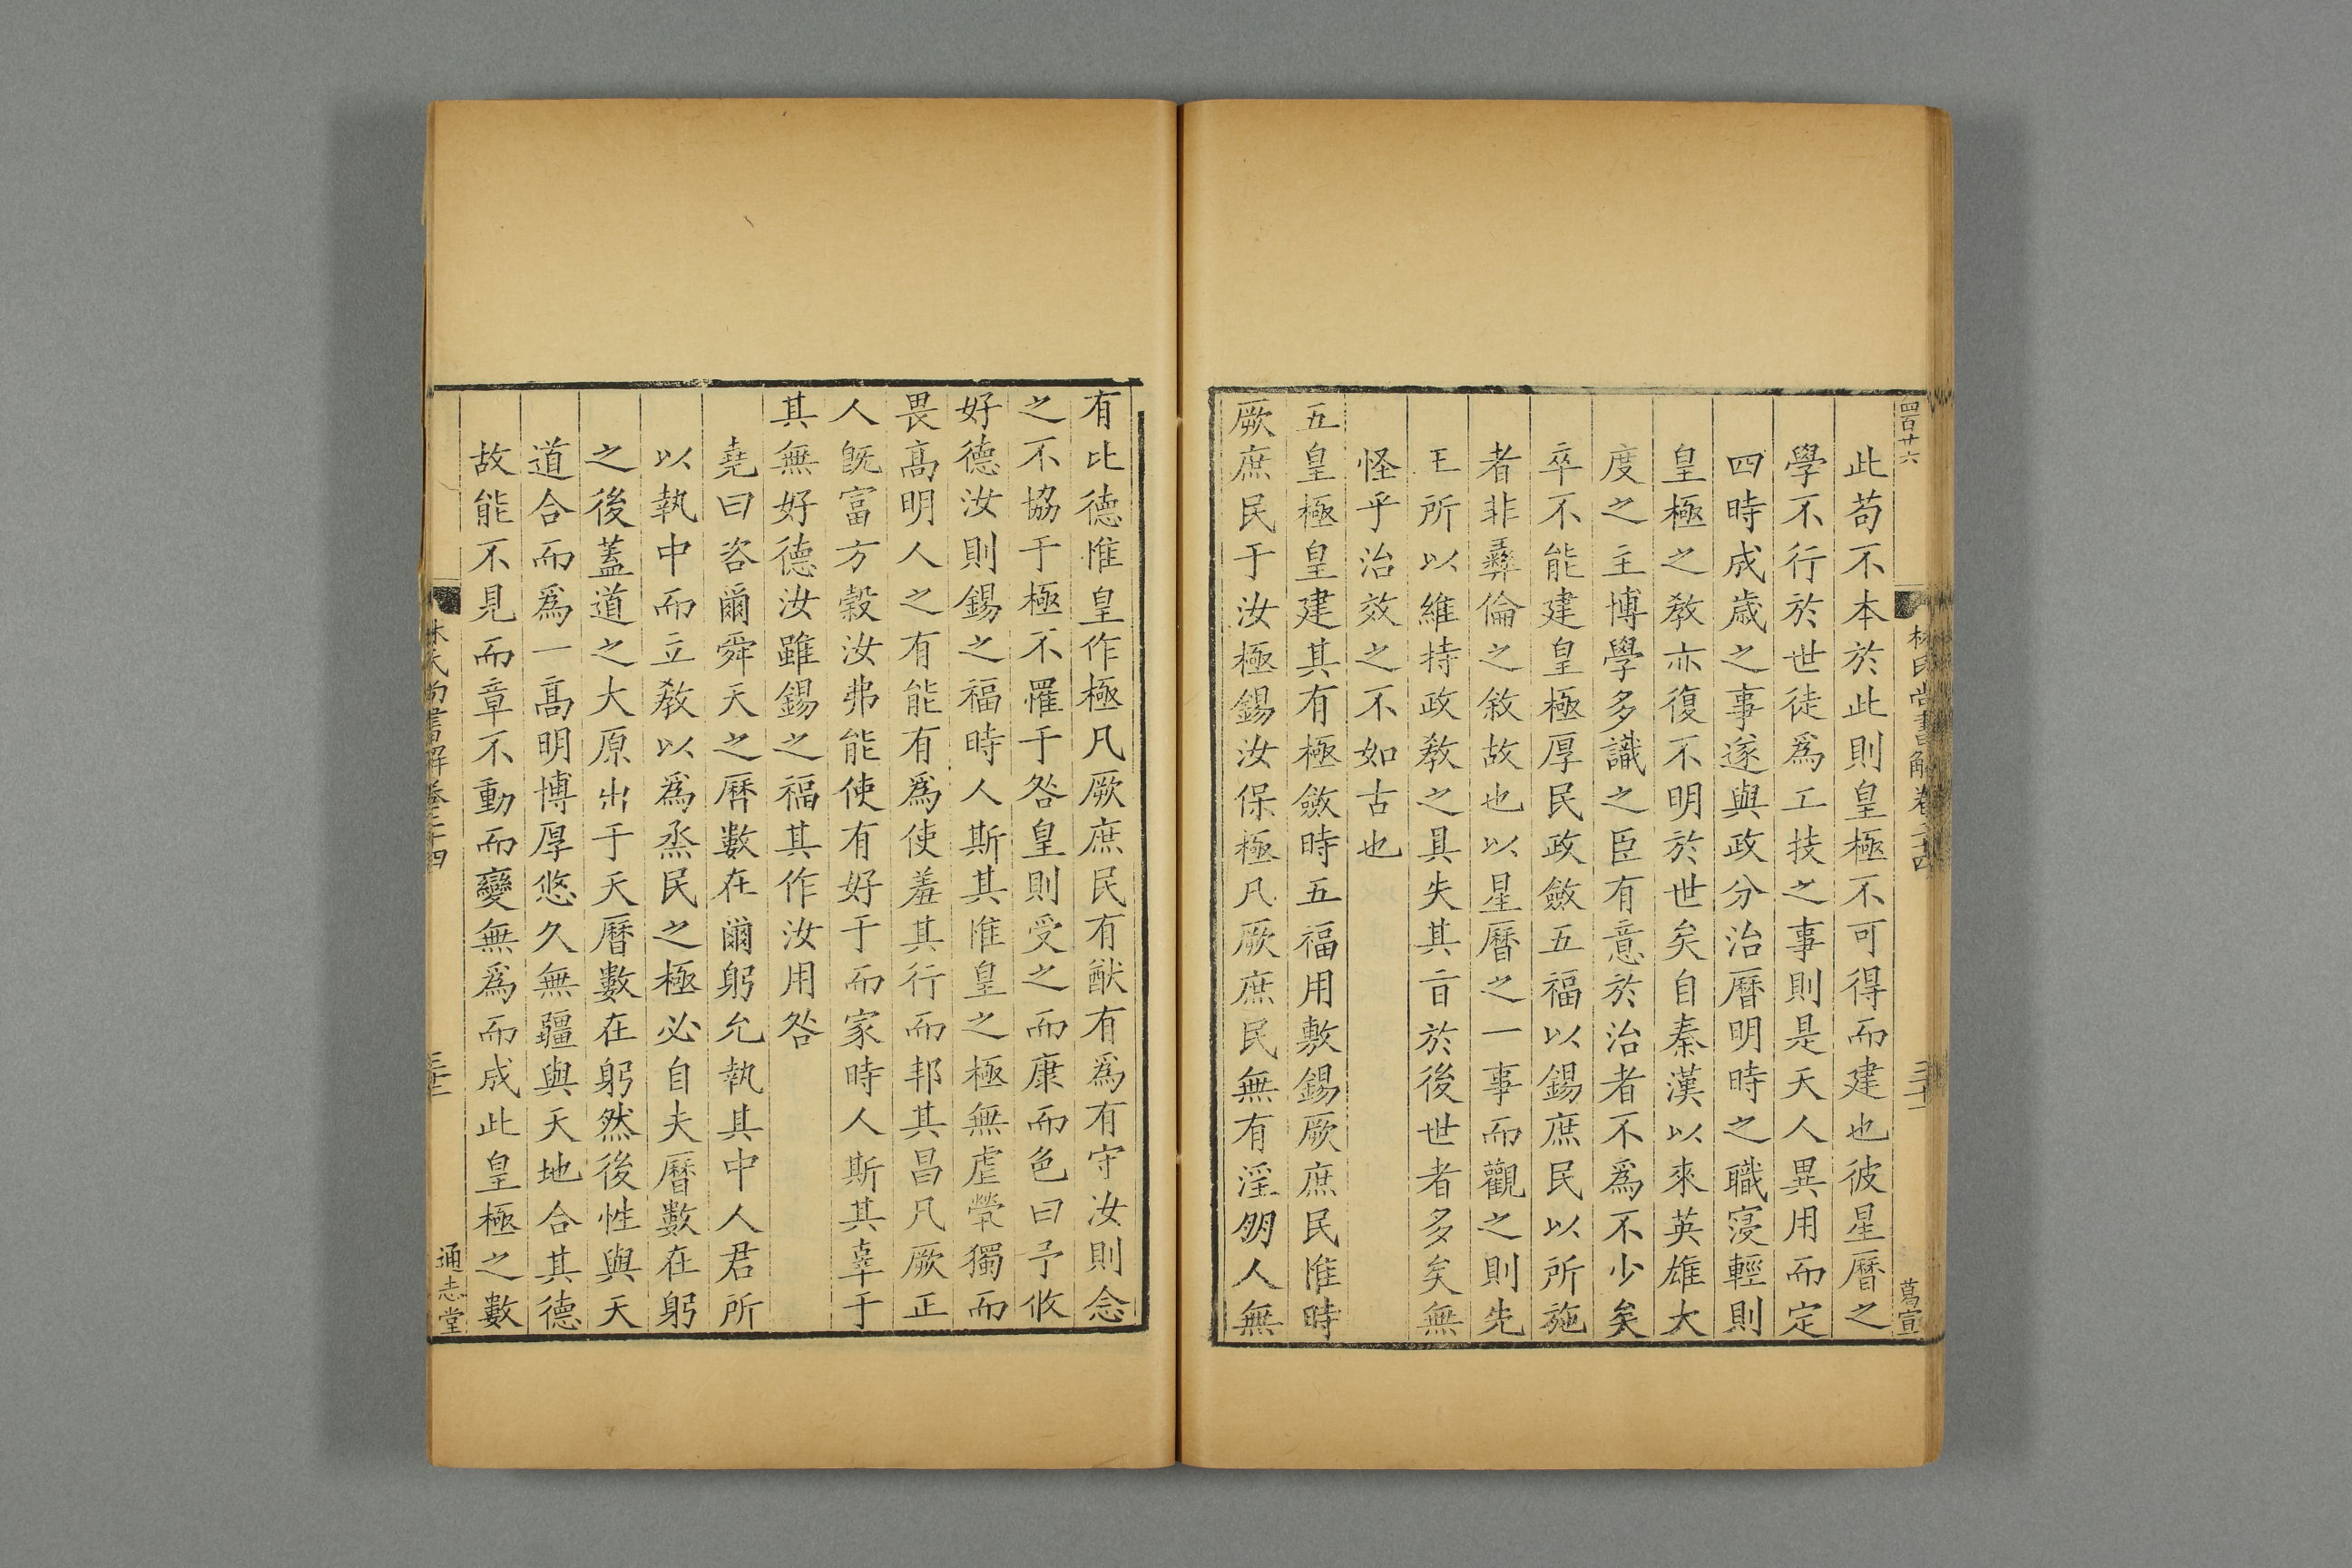 四百廿六
林氏尚書解卷二十四
葛宣
此苟不本於此則皇極不可得而建也彼星曆之
學不行於世徒爲工技之事則是天人異用而定
四時成歲之事遂與政分治曆明時之職寖輕則
皇極之敎亦復不明於世矣自秦漢以來英雄大
度之主博學多識之臣有意於治者不爲不少矣
卒不能建皇極厚民政斂五福以錫庶民以所施
者非彝倫之敘故也以星曆之一事而觀之則先
王所以維持政敎之具失其㫖於後世者多矣無
怪乎治效之不如古也
五皇極皇建其有極斂時五福用敷錫厥庶民惟時
厥庶民于汝極錫汝保極凡厥庶民無有淫朋人無
有比德惟皇作極凡厥庶民有猷有爲有守汝則念
之不協于極不罹于咎皇則受之而康而色曰予攸
好德汝則錫之福時人斯其惟皇之極無虐煢獨而
畏高明人之有能有爲使羞其行而邦其昌凡厥正
人旣富方穀汝弗能使有好于而家時人斯其辜于
其無好德汝雖錫之福其作汝用咎
堯曰咨爾舜天之曆數在爾躬允執其中人君所
以執中而立敎以爲烝民之極必自夫曆數在躬
之後蓋道之大原出于天曆數在躬然後性與天
道合而爲一高明博厚悠久無疆與天地合其德
故能不見而章不動而變無爲而成此皇極之數
林氏尚書解卷二十四
通志堂